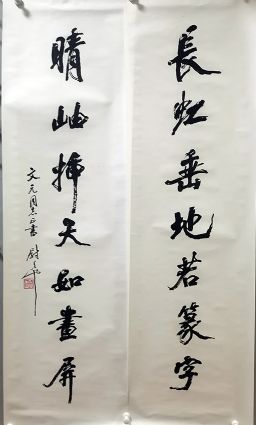 長虹垂地若篆字
晴岫插天如畫屏
文元同志正書